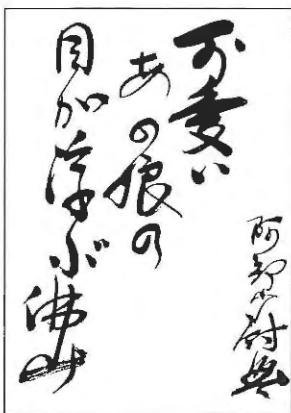 可愛い
あの娘の
目が浮ぶ佛山
阿部少尉